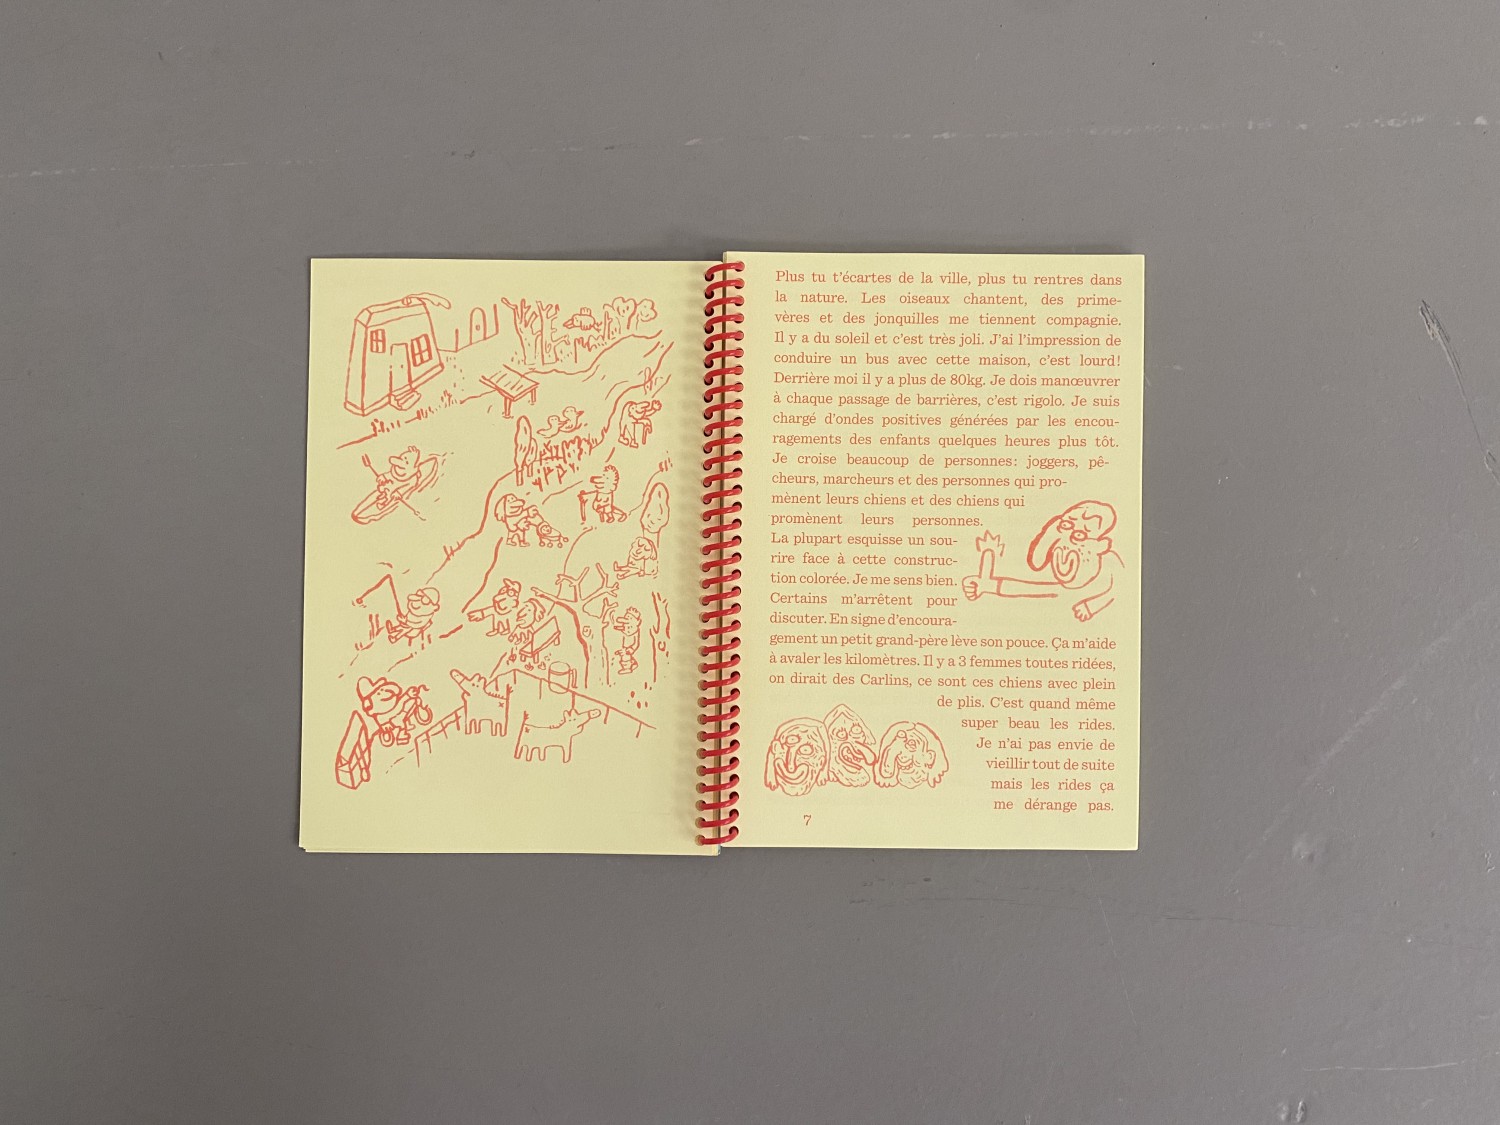 Plus tu t'écartes de la ville, plus tu rentres dans
la nature. Les oiseaux chantent, des prime-
vères et des jonquilles me tiennent compagnie.
Il y a du soleil et c'est très joli. J'ai l'impression de
conduire un bus avec cette maison, c'est lourd!
Derrière moi il y a plus de 80kg. Je dois manœuvrer
à chaque passage de barrières, c'est rigolo. Je suis
chargé d'ondes positives générées par les encou-
ragements des enfants quelques heures plus tôt.
Je croise beaucoup de personnes: joggers, pê-
cheurs, marcheurs et des personnes qui pro-
mènent leurs chiens et des chiens qui
promènent leurs personnes.
La plupart esquisse un sou-
rire face à cette construc-
tion colorée. Je me sens bien.
Certains m'arrêtent pour
discuter. En signe d'encoura-
gement un petit grand-père lève son pouce. Ça m'aide
à avaler les kilomètres. Il y a 3 femmes toutes ridées,
on dirait des Carlins, ce sont ces chiens avec plein
de plis. C'est quand même
super beau les rides.
Je n'ai pas envie de
vieillir tout de suite
mais les rides ça
me dérange pas.
7